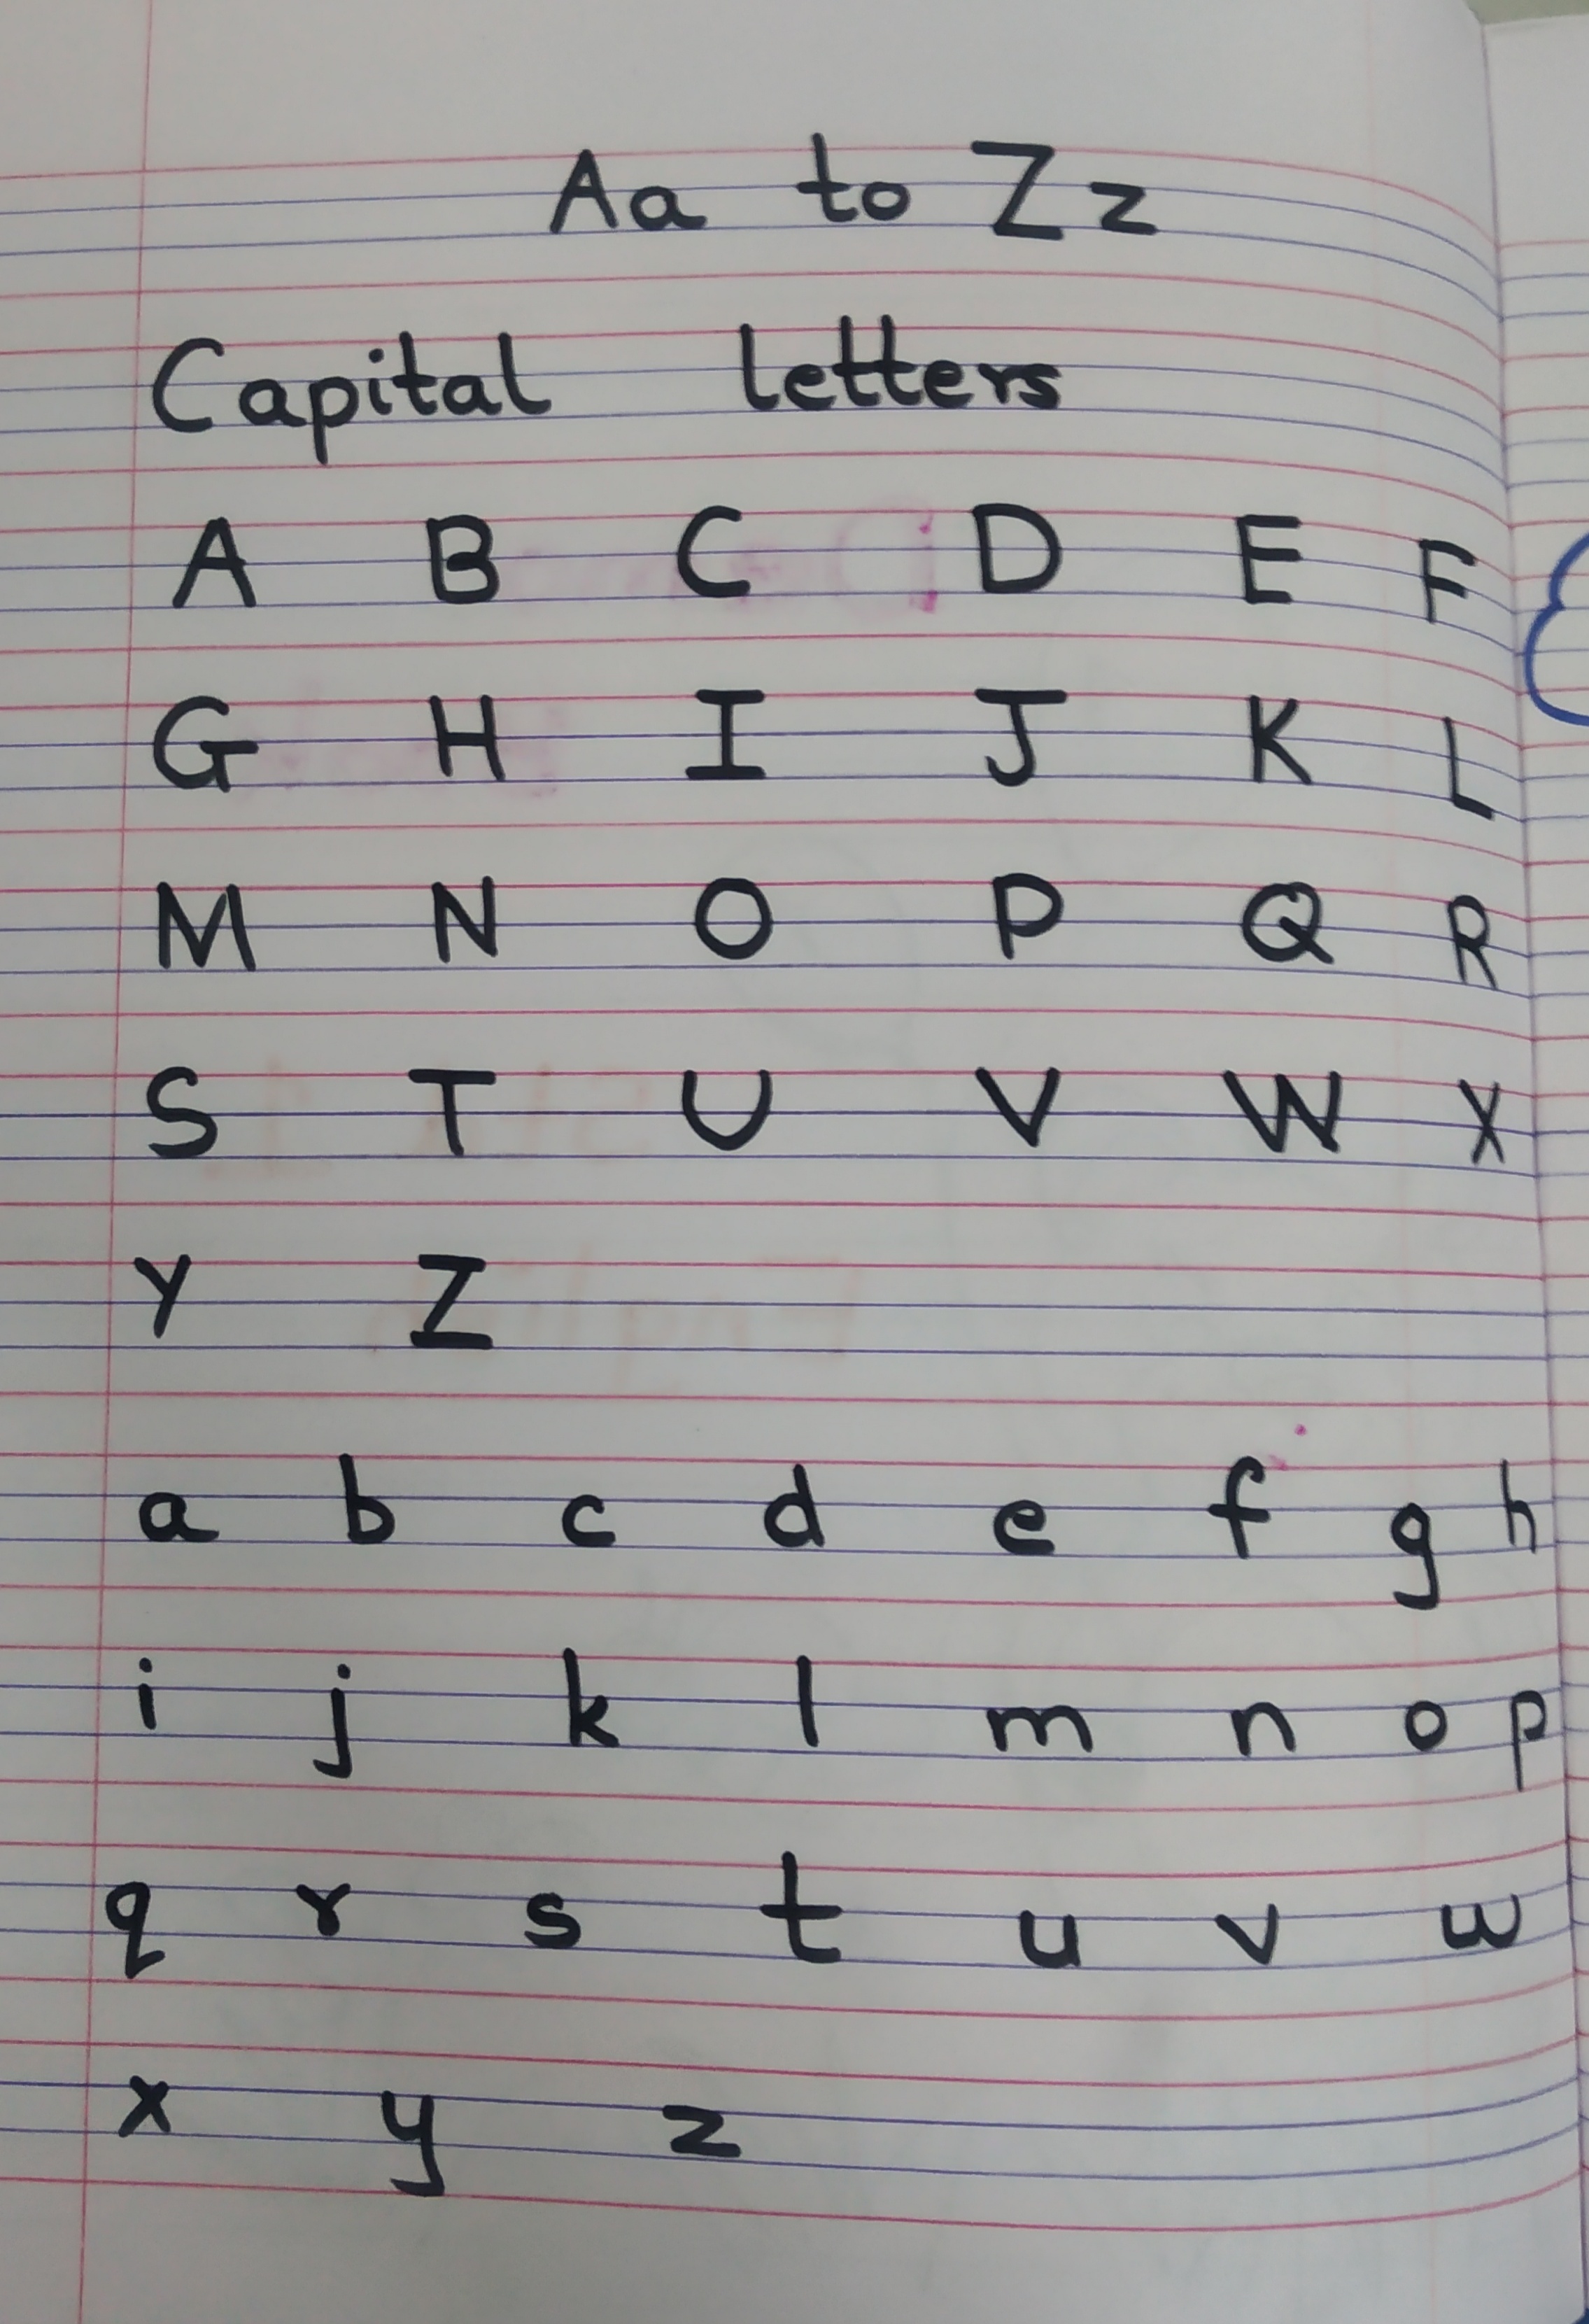 Aa to Zz
Capital letters
A B C D E F
G H I J K L
M N O P Q R
S T U V W X
Y Z
a b c d e f g h
i j k l m n o p
q r s t u v w
x y z